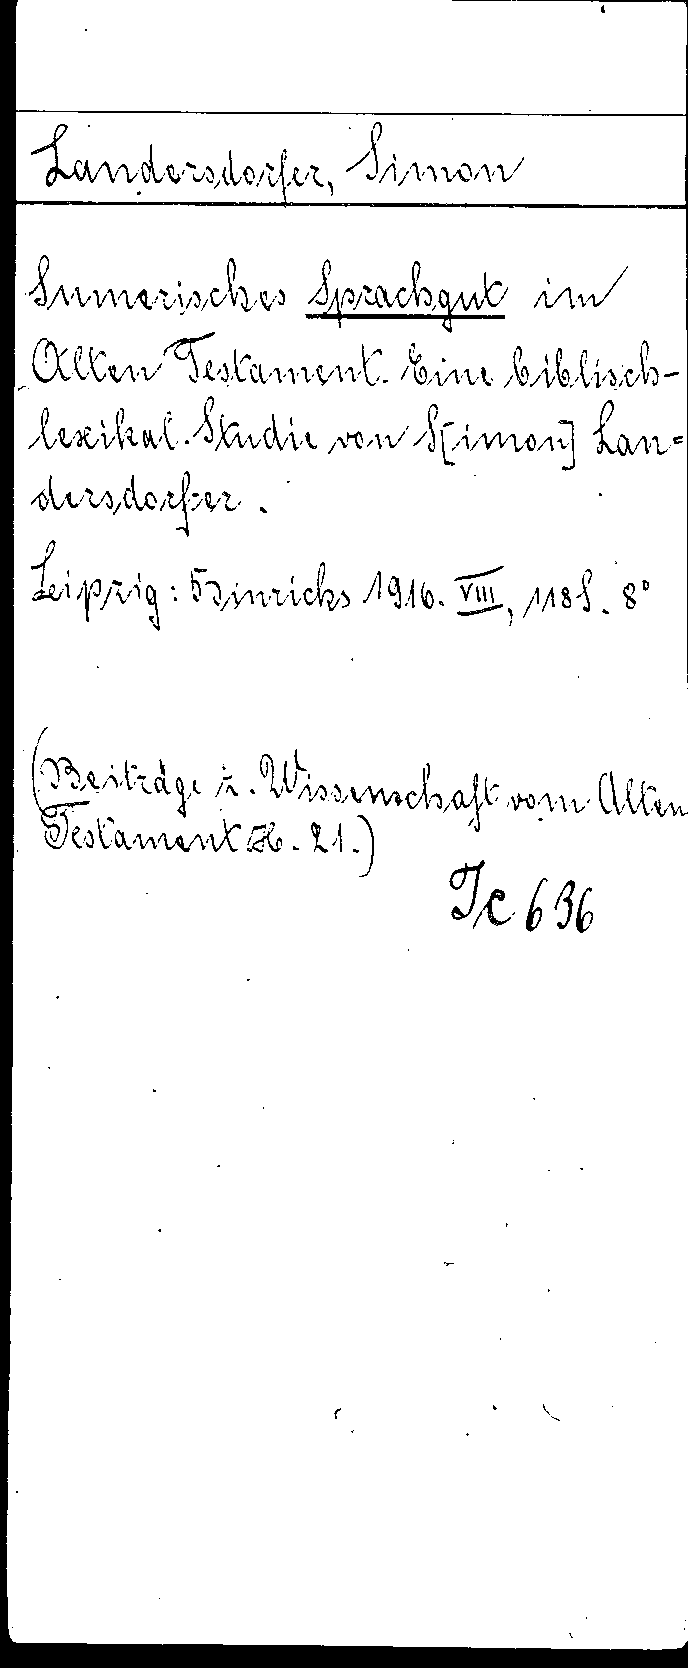 Landersdorfer, Simon
Sumerisches Sprachgut im
Alten Testament. Eine biblisch-
lexikal. Studie von S[imon] Lan=
dersdorfer.
Leipzig: Hinrichs 1916. VIII, 118 S. 8°
(Beiträge z. Wissenschaft vom Alten
Testament H. 21.)
Tc 636